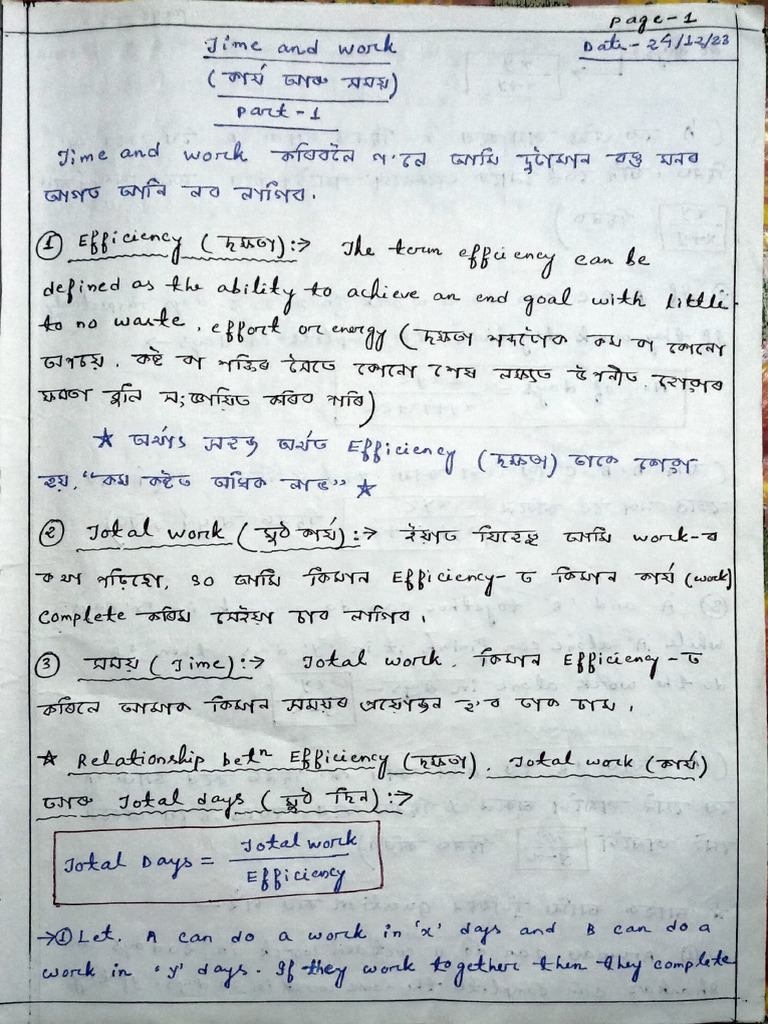 page-1
Date - 24/12/23
Time and work
(কাৰ্য আৰু সময়)
part-1
Time and work কৰিবলৈ গ'লে আমি দুটামান বস্তু মনৰ
আগত আনি লব লাগিব.
① Efficiency (দক্ষতা):→ The term efficiency can be
defined as the ability to achieve an end goal with little
to no waste, effort or energy (দক্ষতা শব্দটোক কম বা কোনো
অপচয়, কষ্ট বা শক্তিৰ সৈতে কোনো শেষ লক্ষ্যত উপনীত হোৱাৰ
ক্ষমতা বুলি সংজ্ঞায়িত কৰিব পাৰি)
★ অৰ্থাৎ সহজ অৰ্থত Efficiency (দক্ষতা) তাকে কোৱা
হয়, "কম কষ্টত অধিক লাভ" ★
② Total work (মুঠ কাৰ্য):→ ইয়াত যিহেতু আমি work-ৰ
কথা পঢ়িছো, so আমি কিমান Efficiency-ত কিমান কাৰ্য (work)
complete কৰিম সেইয়া চাব লাগিব.
③ সময় (Time):→ Total work, কিমান Efficiency-ত
কৰিলে আমাক কিমান সময়ৰ প্ৰয়োজন হ'ব তাক চাম.
★ Relationship betⁿ Efficiency (দক্ষতা), Total work (কাৰ্য)
আৰু Total days (মুঠ দিন):→
Total Days = Total work
Efficiency
→① Let, A can do a work in 'x' days and B can do a
work in 'y' days. If they work together then they complete